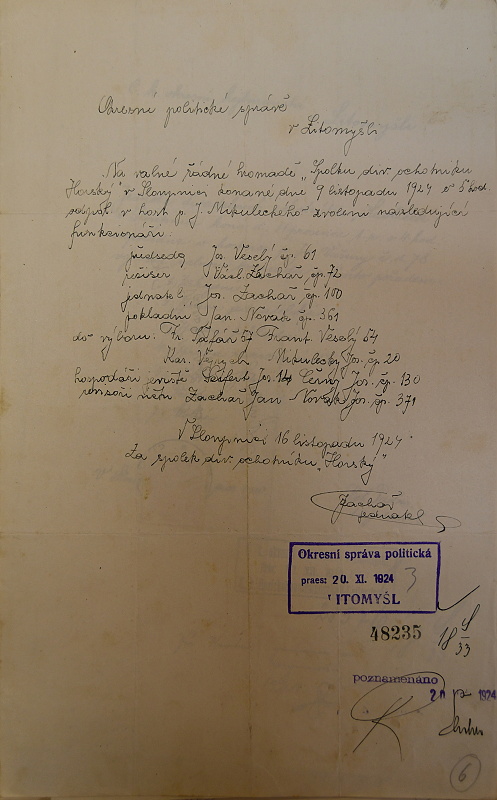 Okresní politické správě
v Litomyšli
Na valné řádné hromadě „Spolku div. ochotníku
Horský" v Sloupnici konané dne 9 listopadu 1924 o 5 hod.
odpol. v host p. J. Mikuleckého zvoleni následující
funkcionáři:
předseda Jos. Veselý čp. 61
režiser Václ. Zachař, čp. 72
jednatel, Jos. Zachař, čp. 100
pokladní Jan. Novák čp. 361
do výboru: Fr. Šafář 57 Frant. Veselý 54
Kar. Mikulecký Jos. čp 20
hospodáři Seifert Jos. 14 Černý Jos. čp. 130
revisoři účtu Zachař Jan Novák Jos. čp. 371
V Sloupnici 16 listopadu 1924
Za spolek div. ochotníku „Horský"
Zachař
jednatel
Okresní správa politická
praes: 20. XI. 1924 3
ITOMYŠL
48235
18
33
poznamenáno
1924
6